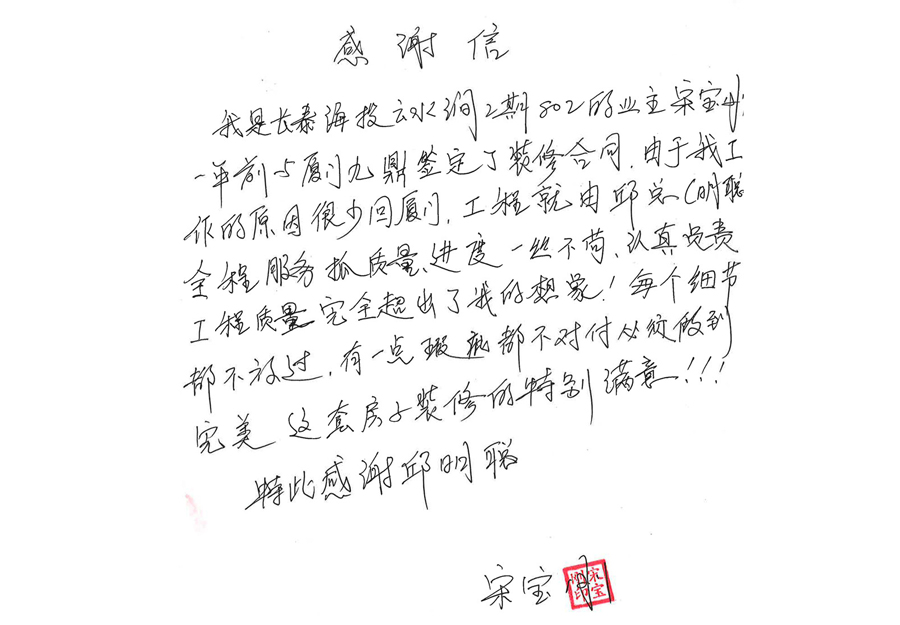 感谢信
我是长泰海投云水涧2期802的业主宋宝
一年前与厦门九鼎签定了装修合同.由于我工
作的原因很少回厦门,工程就由邱总(明聪
全程服务抓质量、进度一丝不苟、认真负责
工程质量完全超出了我的想象!每个细节
都不放过,有一点瑕疵都不对付必须做到
完美 这套房子装修的特别满意!!!
特此感谢邱明聪
宋宝
宋宝 印